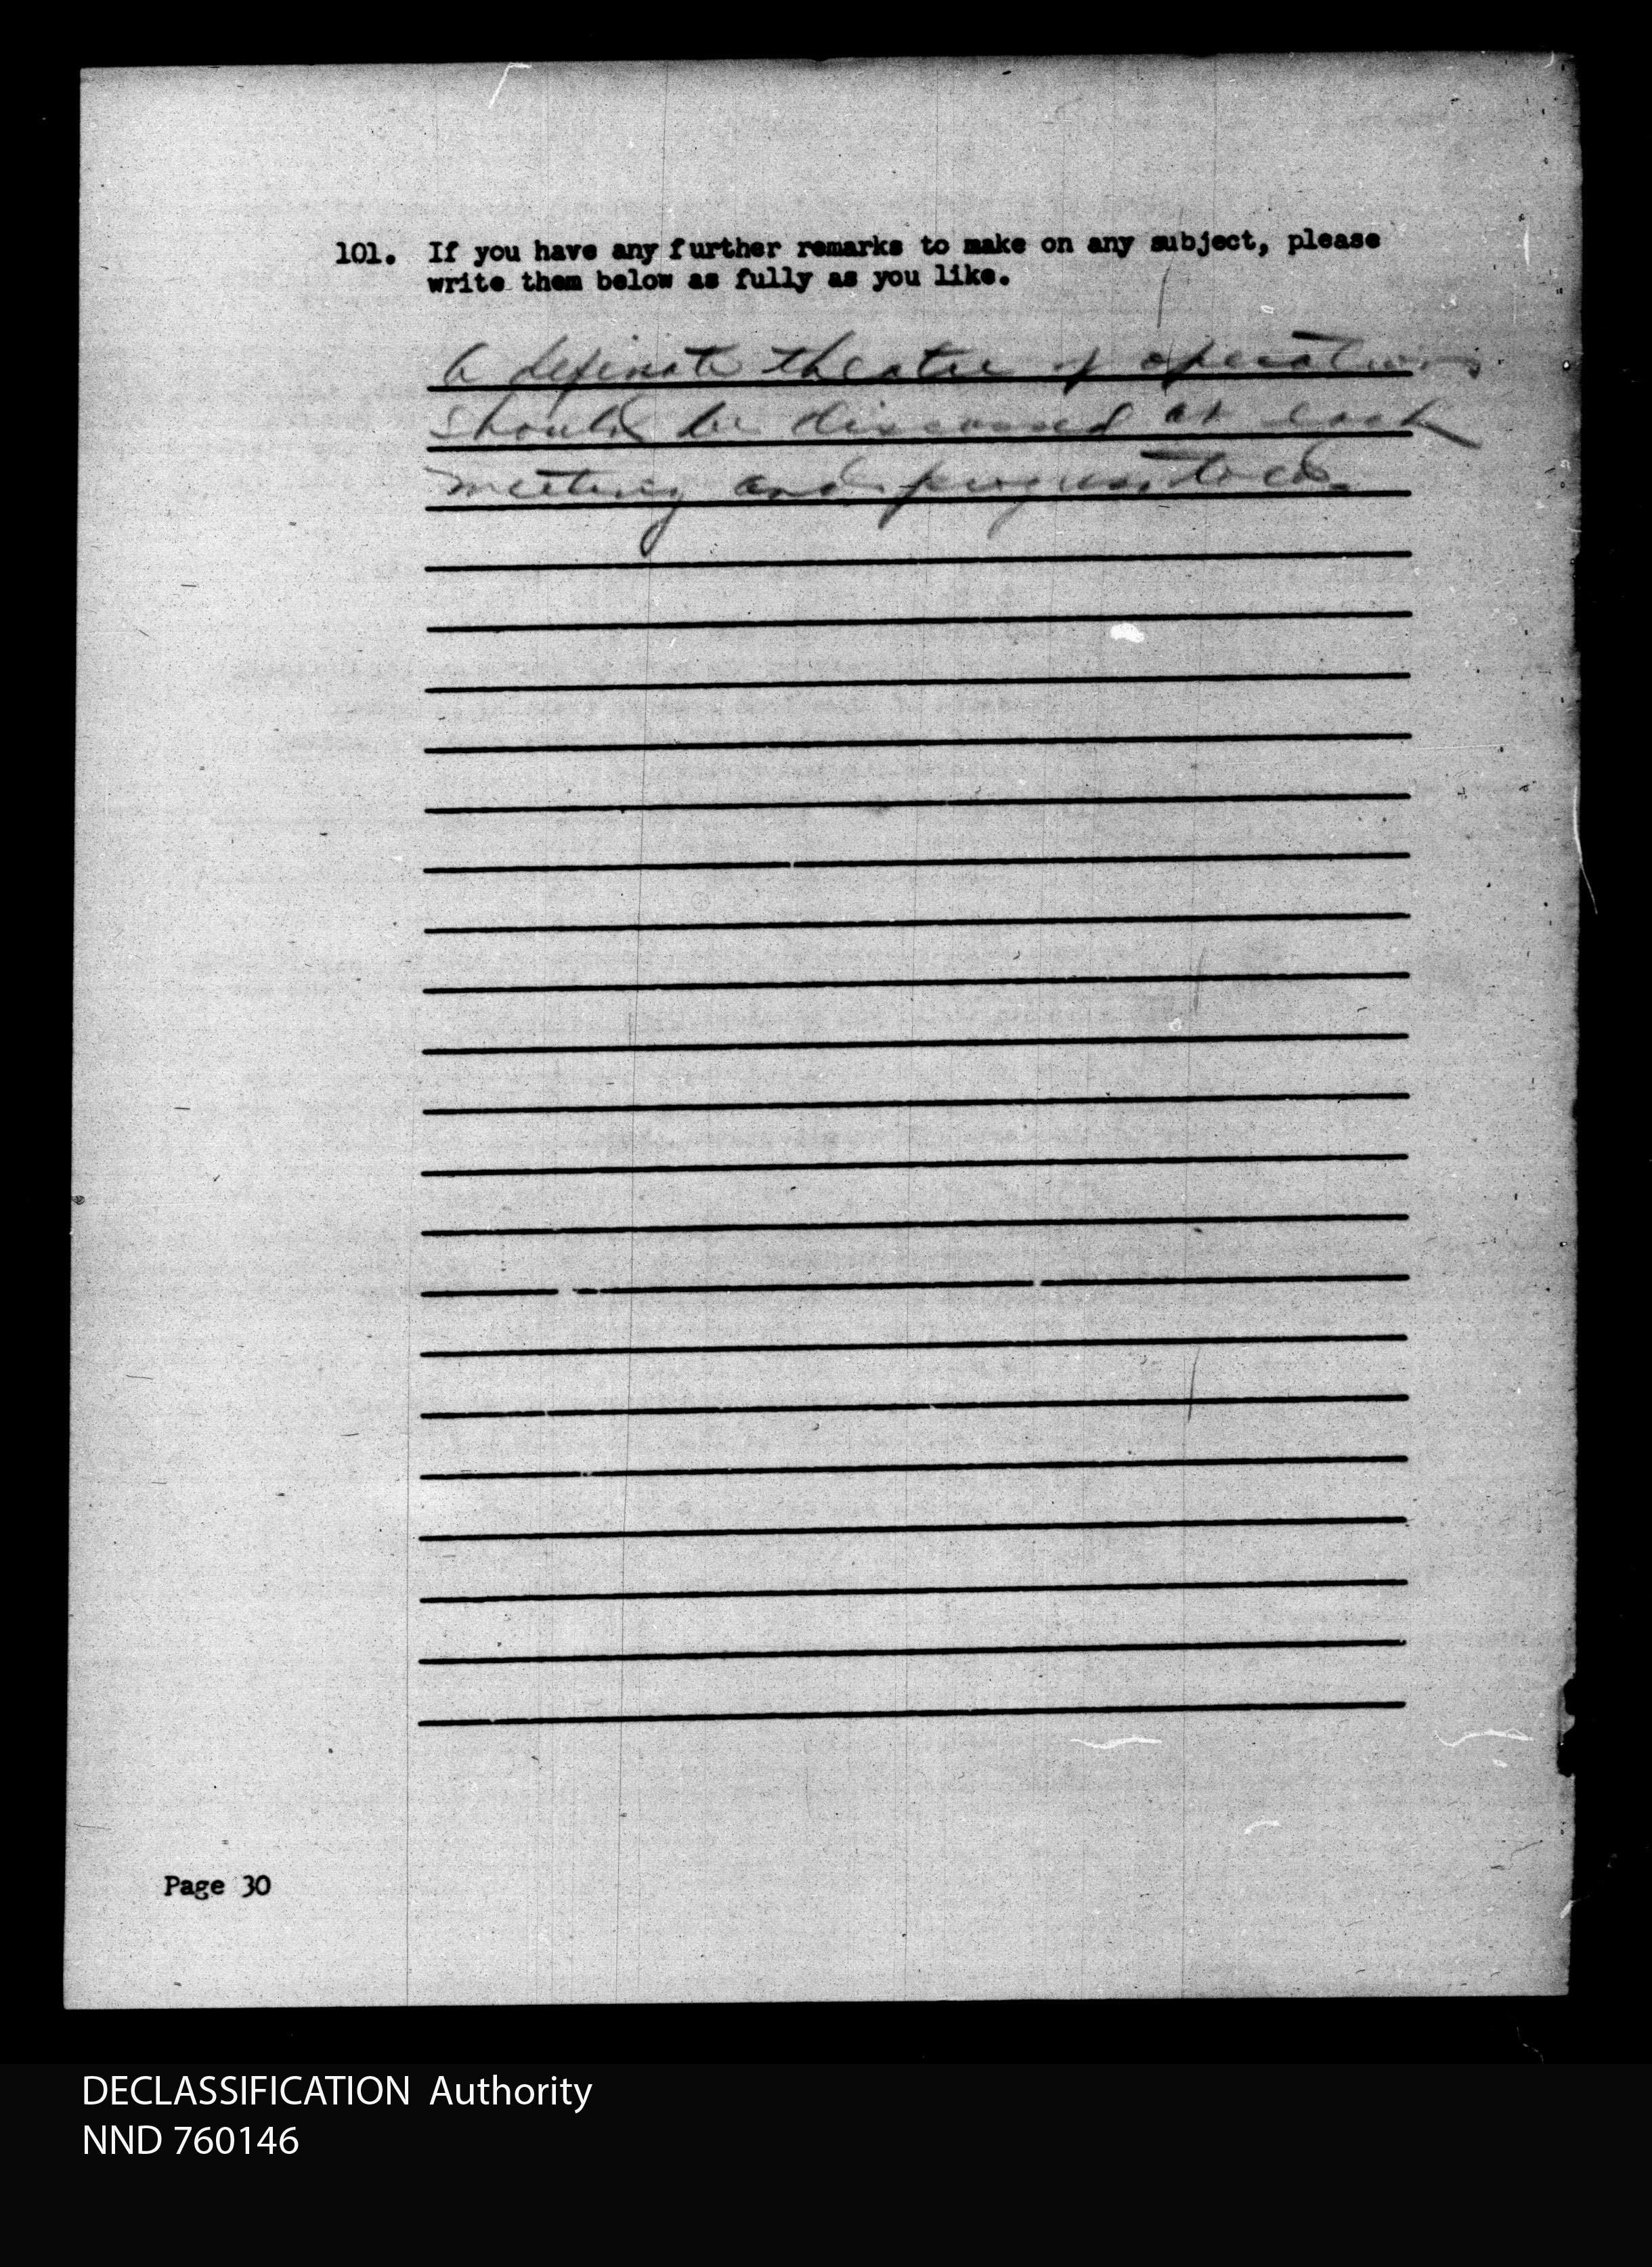 101. If you have any further remarks to make on any subject, please
write them below as fully as you like.
A definate theatre of operations
should be discussed at each
meeting and prognosticated.
Page 30
DECLASSIFICATION Authority
NND 760146